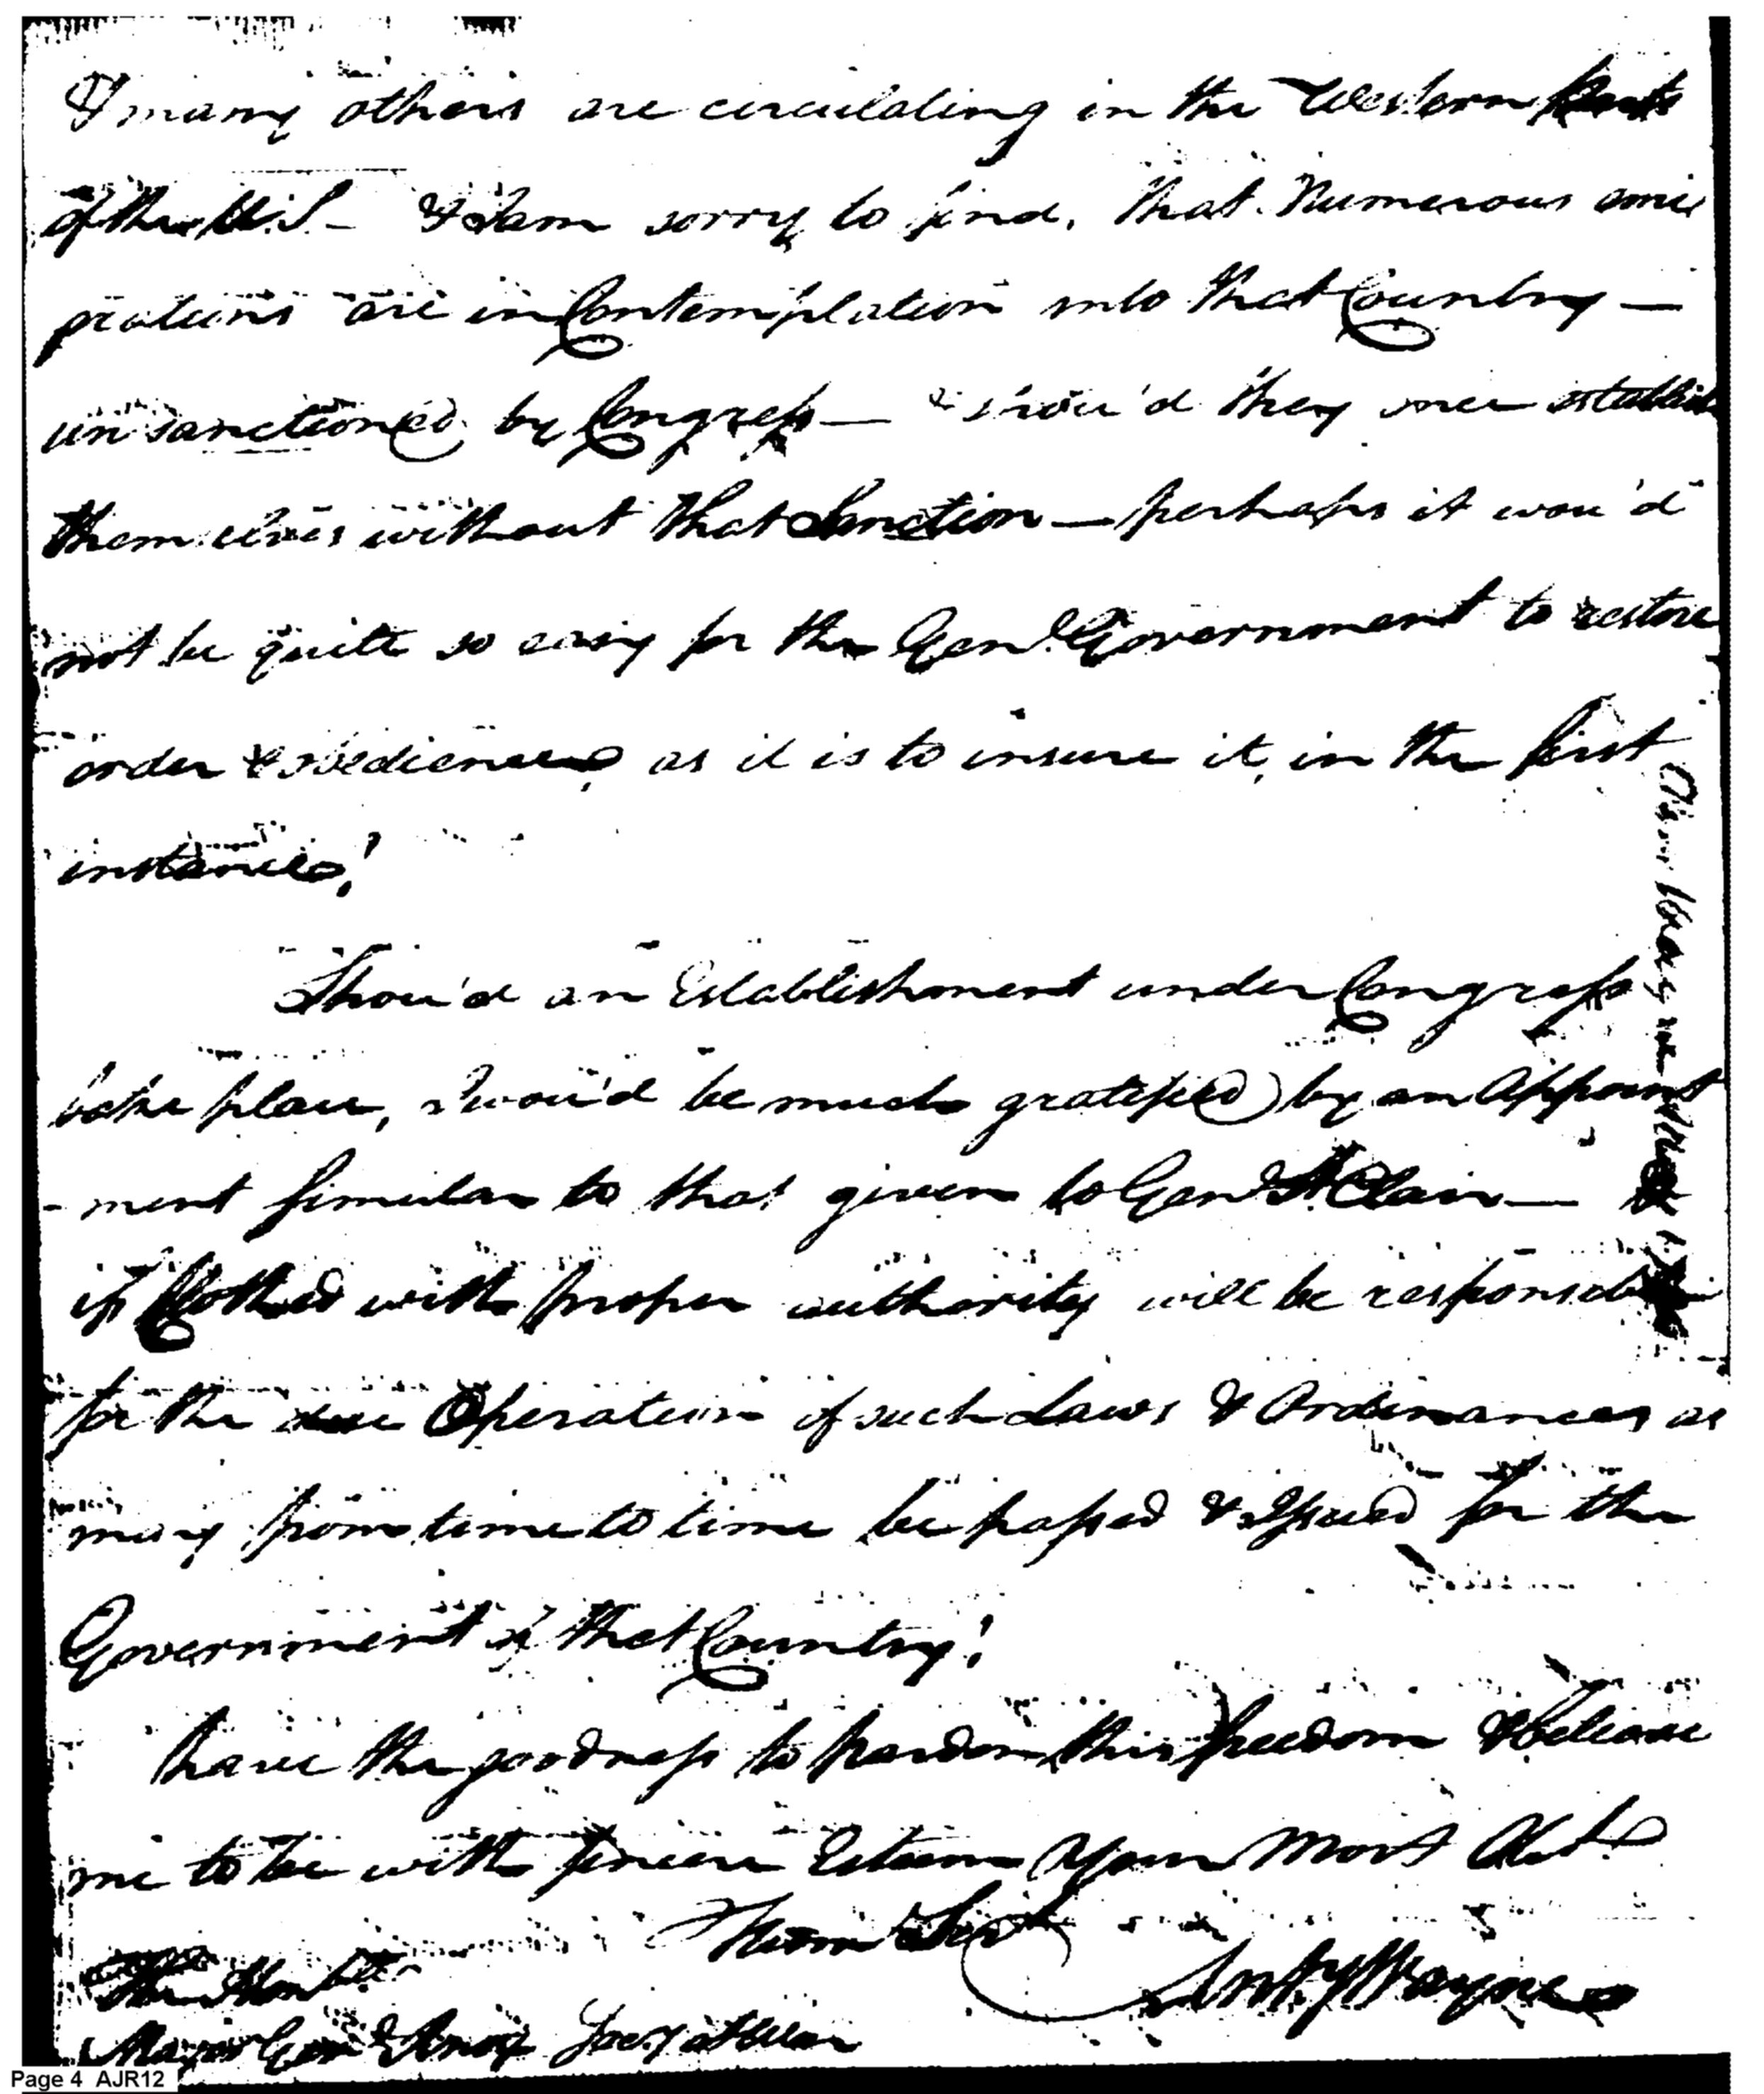 & many others are circulating in the Western parts
of the U.S. - & I am sorry to find, that Numerous emi
grations are in Contemplation into that Country —
unsanctioned by Congress — & shou'd they once establish
themselves without that Sanction — perhaps it wou'd
not be quite so easy for the Genl. Government to restore
order & obedience, as it is to insure it, in the first
instance!
Shou'd an Establishment under Congress
take place, I wou'd be much gratified by an Appoint
- ment similar to that given to Genl St. Clair —
if Clothed with proper authority will be responsible
for the due Operation of such Laws & Ordinances as
may from time to time be passed & issued for the
Government of that Country!
have the goodness to pardon this freedom & believe
me to be with sincere Esteem Your Most Obt.
Hum Sert
Anty Wayne
The Honble
Major Genl Knox Secy at War
Page 4 AJR12